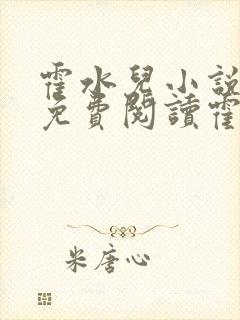 霍水兒小說
免費閱讀霍
米唐心